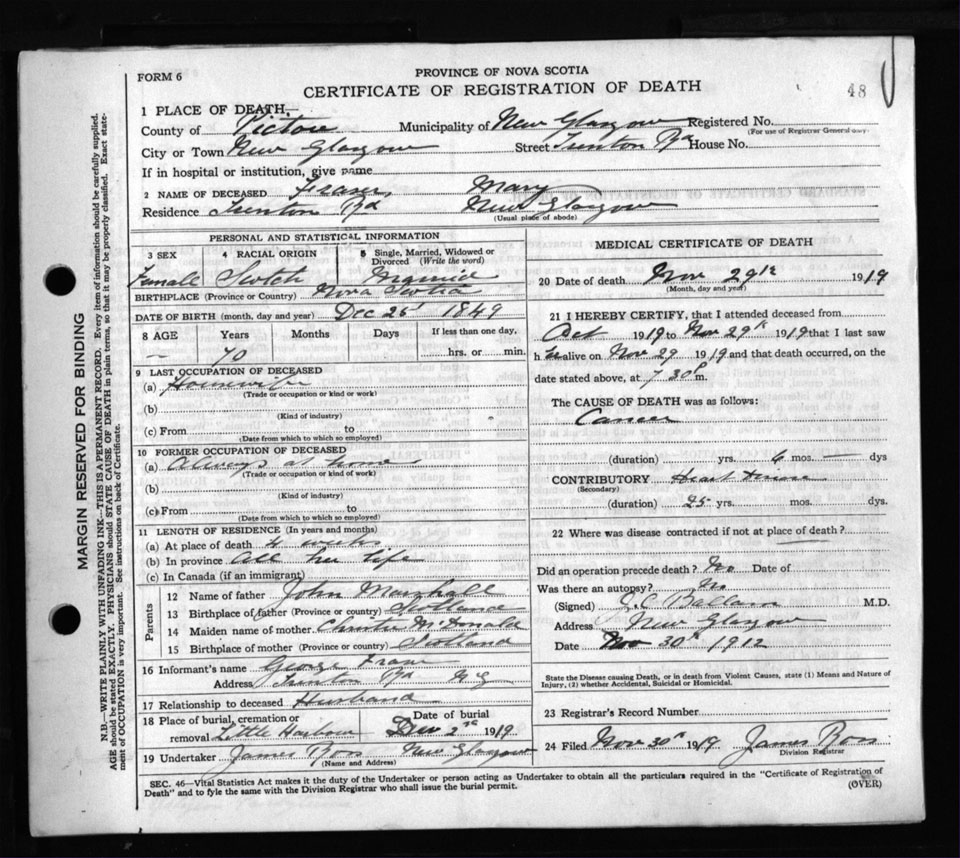 FORM 6
PROVINCE OF NOVA SCOTIA
CERTIFICATE OF REGISTRATION OF DEATH
48
1 PLACE OF DEATH,—
County of Pictou Municipality of New Glasgow Registered No.
(For use of Registrar General only)
City or Town New Glasgow Street Trenton Rd House No.
If in hospital or institution, give name
2 NAME OF DECEASED Fraser, Mary
Residence Trenton Rd New Glasgow
(Usual place of abode)
PERSONAL AND STATISTICAL INFORMATION
3 SEX 4 RACIAL ORIGIN 5 Single, Married, Widowed or Divorced (Write the word)
Female Scotch Married
BIRTHPLACE (Province or Country) Nova Scotia
DATE OF BIRTH (month, day and year) Dec 25 1849
8 AGE Years Months Days If less than one day,
— 70 hrs. or min.
9 LAST OCCUPATION OF DECEASED
(a) Housewife
(Trade or occupation or kind or work)
(b)
(Kind of industry)
(c) From to
(Date from which to which so employed)
10 FORMER OCCUPATION OF DECEASED
(a) Always at home
(Trade or occupation or kind of work)
(b)
(Kind of industry)
(c) From to
(Date from which to which so employed)
11 LENGTH OF RESIDENCE (In years and months)
(a) At place of death 4 weeks
(b) In province All her life
(c) In Canada (if an immigrant)
Parents
12 Name of father John Marshall
13 Birthplace of father (Province or country) Scotland
14 Maiden name of mother Christie McDonald
15 Birthplace of mother (Province or country) Scotland
16 Informant's name George Fraser
Address Trenton Rd N G
17 Relationship to deceased Husband
18 Place of burial, cremation or removal Little Harbour
Date of burial Dec 2nd 1919
19 Undertaker James Ross New Glasgow
(Name and Address)
MEDICAL CERTIFICATE OF DEATH
20 Date of death Nov 29th 1919
(Month, day and year)
21 I HEREBY CERTIFY, that I attended deceased from
Oct 1919 to Nov 29th 1919 that I last saw
h er alive on Nov 29 1919 and that death occurred, on the
date stated above, at 7 30 p m.
The CAUSE OF DEATH was as follows:
Cancer
(duration) yrs. 6 mos. — dys
CONTRIBUTORY Heart
(Secondary)
(duration) 25 yrs. mos. dys.
22 Where was disease contracted if not at place of death? —
Did an operation precede death? No Date of
Was there an autopsy? No
(Signed) M.D.
Address New Glasgow
Date Nov 30th 1912
State the Disease causing Death, or in death from Violent Causes, state (1) Means and Nature of
Injury, (2) whether Accidental, Suicidal or Homicidal.
23 Registrar's Record Number
24 Filed Nov 30th 1919 James Ross
Division Registrar
SEC. 46—Vital Statistics Act makes it the duty of the Undertaker or person acting as Undertaker to obtain all the particulars required in the "Certificate of Registration of
Death" and to fyle the same with the Division Registrar who shall issue the burial permit.
(OVER)
MARGIN RESERVED FOR BINDING
N.B.—WRITE PLAINLY WITH UNFADING INK—THIS IS A PERMANENT RECORD. Every item of information should be carefully supplied.
AGE should be stated EXACTLY. PHYSICIANS should STATE CAUSE OF DEATH in plain terms, so that it may be properly classified. Exact state-
ment of OCCUPATION is very important. See instructions on back of Certificate.